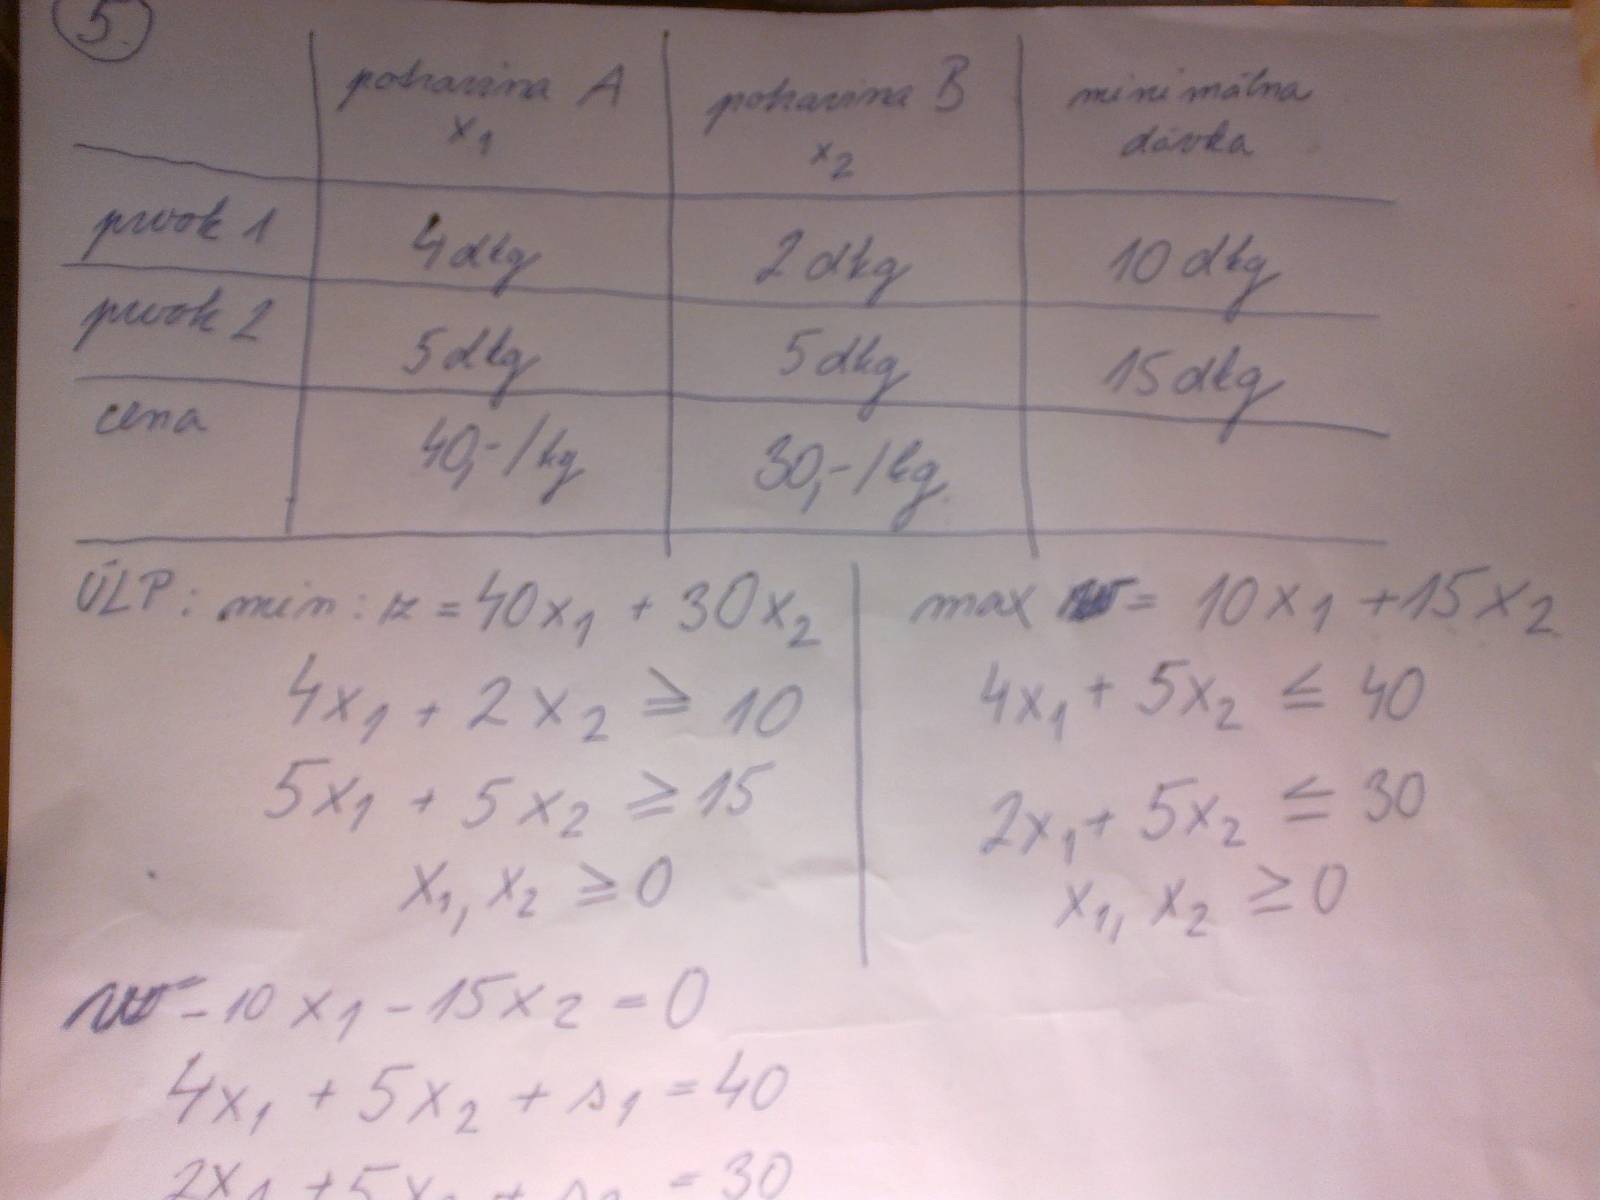 5.
potravina A potravina B minimálna
x₁ x₂ dávka
prvok 1 4 dkg 2 dkg 10 dkg
prvok 2 5 dkg 5 dkg 15 dkg
cena 40,-/kg 30,-/kg
ÚLP: min: z = 40x₁ + 30x₂
4x₁ + 2x₂ ≥ 10
5x₁ + 5x₂ ≥ 15
x₁, x₂ ≥ 0
max w = 10x₁ + 15x₂
4x₁ + 5x₂ ≤ 40
2x₁ + 5x₂ ≤ 30
x₁, x₂ ≥ 0
w - 10x₁ - 15x₂ = 0
4x₁ + 5x₂ + s₁ = 40
2x₁ + 5x₂ + s₂ = 30